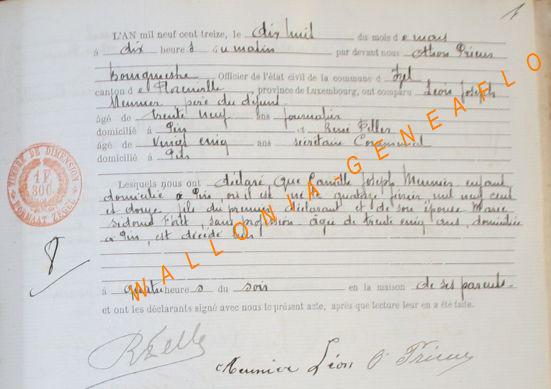 L'AN mil neuf cent treize, le dix huit du mois de mars
à dix heures du matin par devant nous Prieur
bourgmestre Officier de l'état civil de la commune d'Izel
canton de Florenville province de Luxembourg, ont comparu Léon Joseph
Meunier père du défunt
âgé de trente neuf ans journalier
domicilié à Pin et René Feller
âgé de vingt cinq ans secrétaire Communal
domicilié à
Lesquels nous ont déclaré que Camille Joseph Meunier enfant
domicilié à Pin, où il est né le quatre février mil neuf cent
et douze, fils du premier déclarant et de son épouse Marie
sans profession âgée de trente cinq ans, domiciliée
à Pin, est décédé hier
à quatre heures du soir en la maison de ses parents
et ont les déclarants signé avec nous le présent acte, après que lecture leur en a été faite.
Meunier Léon Prieur
TIMBRE DE DIMENSION
1F
30C
FORMAAT ZEGEL
WALLONIA-GENEAFLO